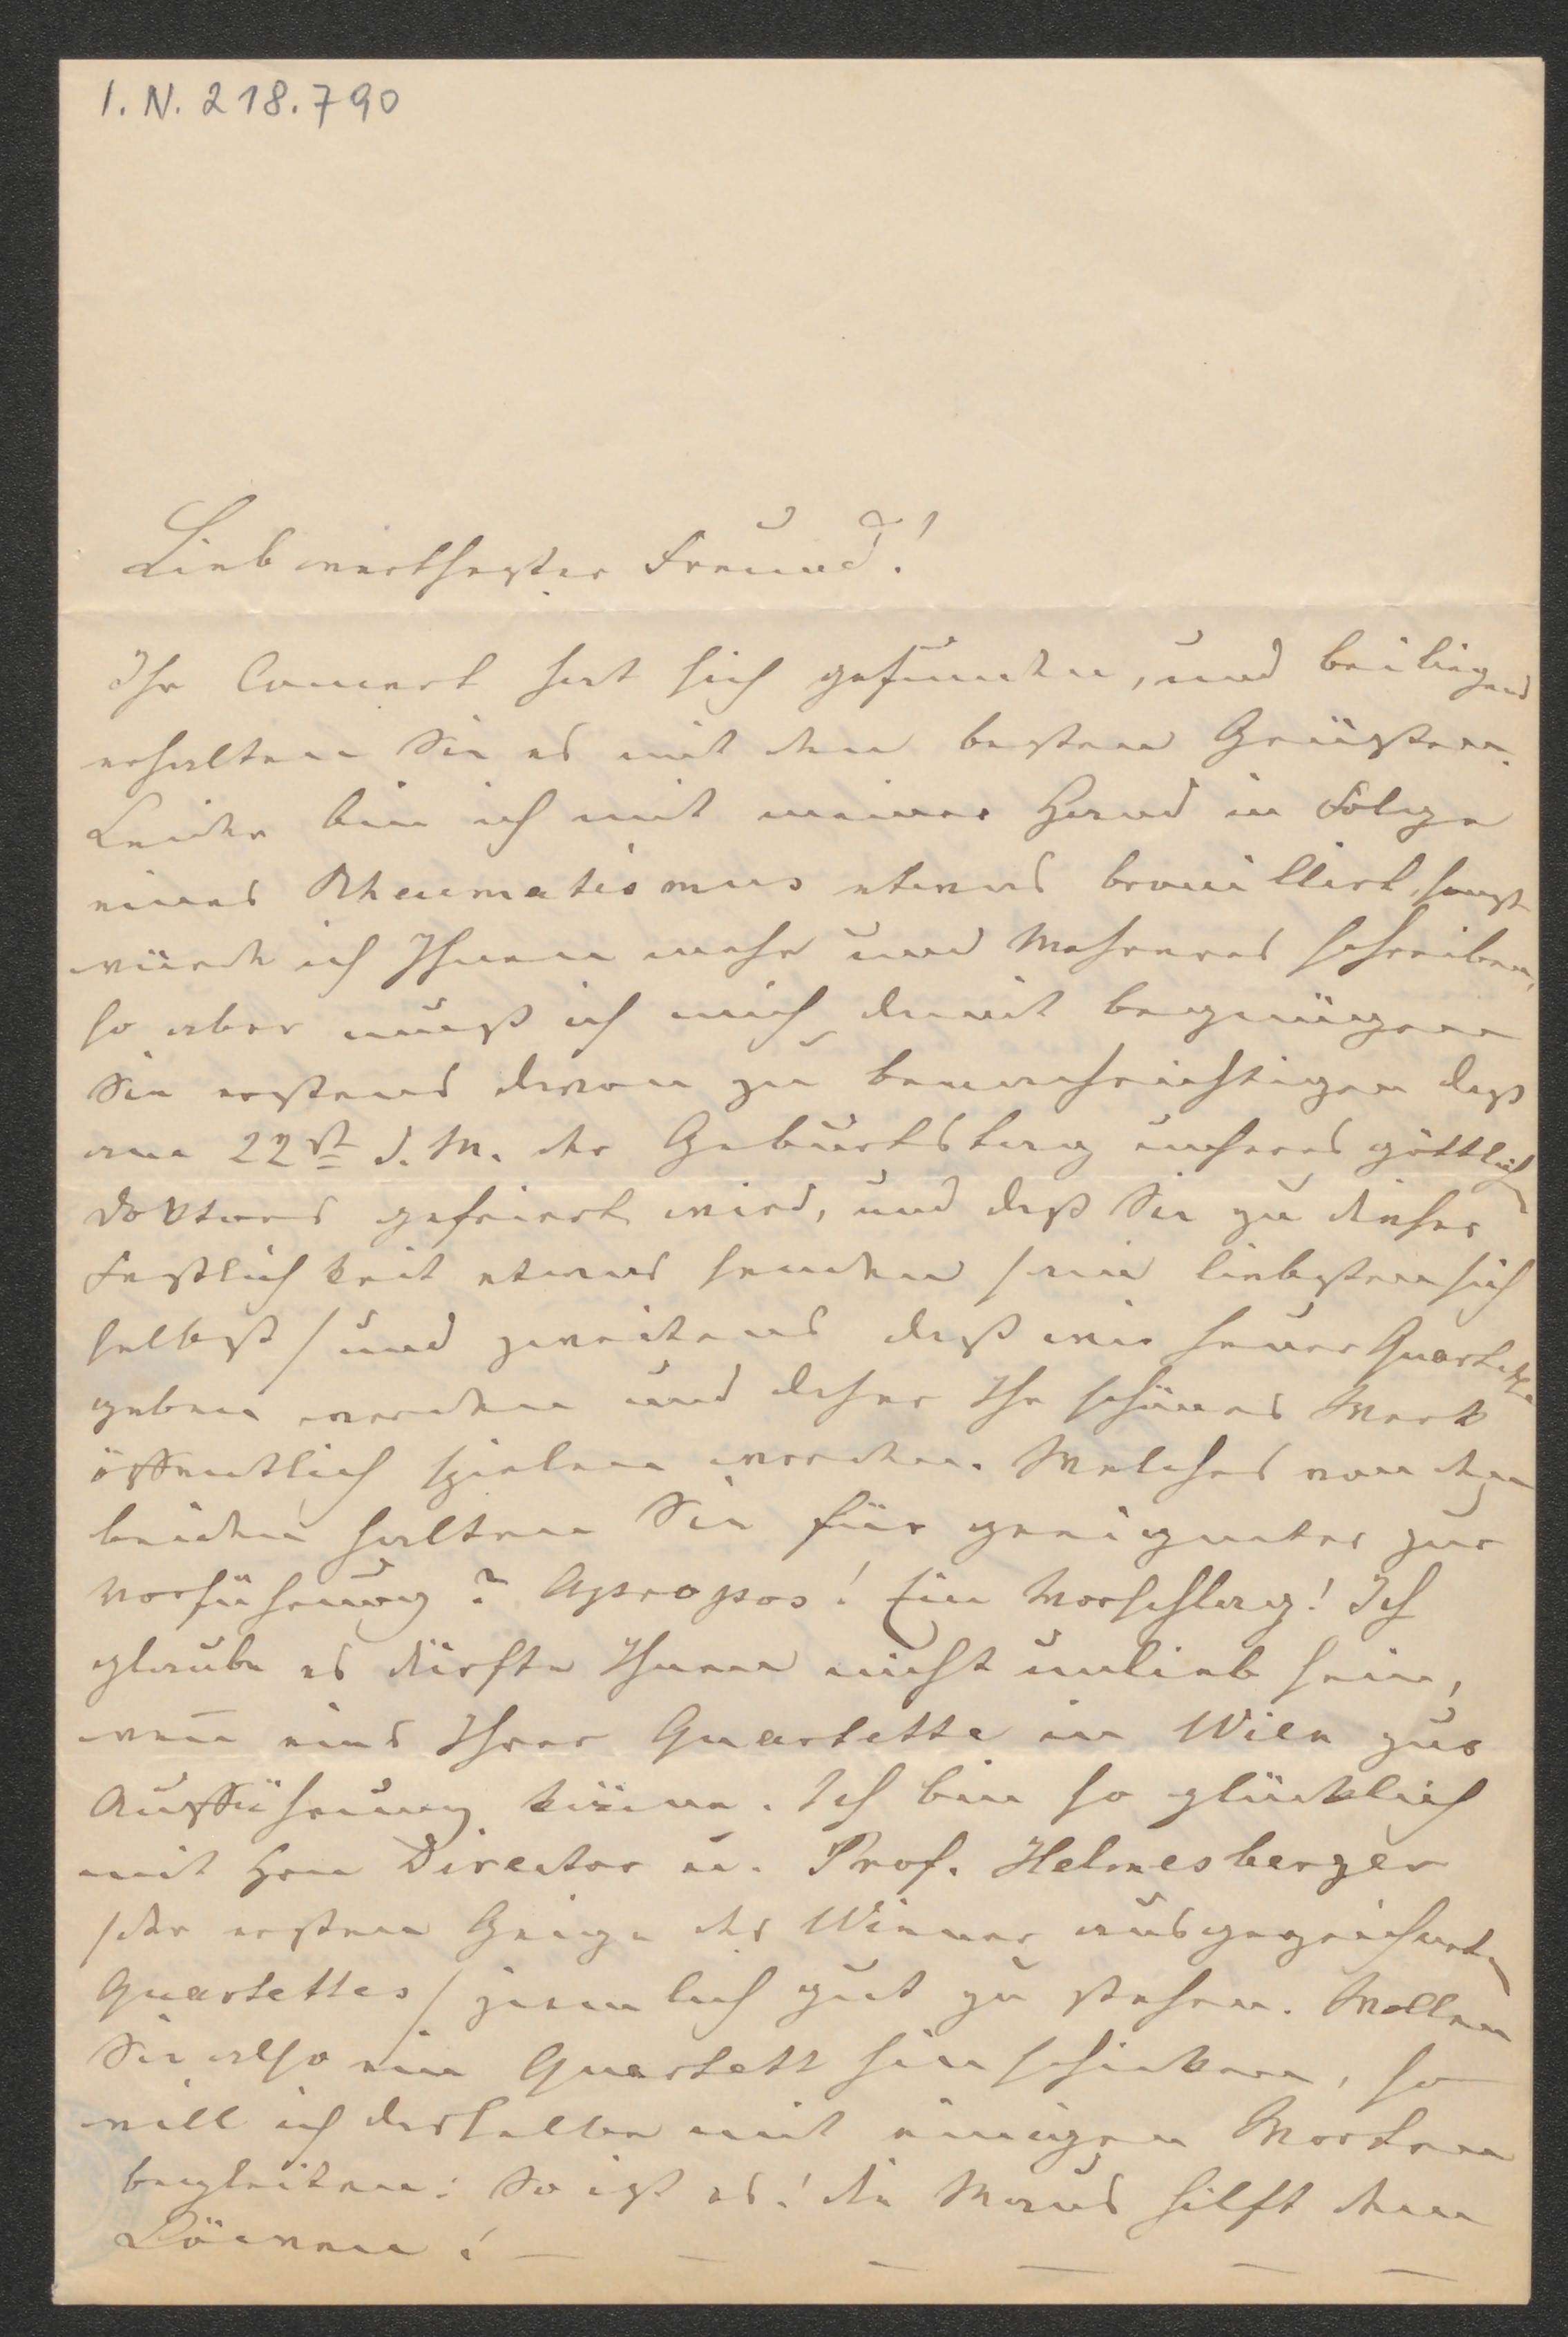 I. N. 218.790
Lieb werthester Freund!
Ihr Concert hat sich gefunden, und beiliegend
erhalten Sie es mit den besten Grüßen.
Leider bin ich mit meiner Hand in Folge
eines Rheumatismus etwas brouillirt, sonst
würde ich Ihnen mehr und Mehreres schreiben,
so aber muß ich mich damit begnügen
Sie erstens davon zu benachrichtigen daß
am 22st d. M. der Geburtstag unseres göttlich
Doktors gefeiert wird, und daß Sie zu dieser
Festlichkeit etwas senden /am liebsten sich
selbst/ und zweitens daß wir heuer Quartette
geben werden und daher Ihr schönes Werk
öffentlich spielen werden. Welches von den
beiden halten Sie für geeigneter zur
Vorführung? Apropos! Ein Vorschlag! Ich
glaube es dürfte Ihnen nicht unlieb sein,
wen̄ eins Ihrer Quartette in Wien zur
Aufführung käme. Ich bin so glücklich
mit Hrn Director u. Prof. Helmesberger
/der ersten Geige des Wiener ausgezeichneten
Quartettes/ ziemlich gut zu stehen. Wollen
Sie also ein Quartett hinschicken, so
will ich dasselbe mit einigen Worten
begleiten: So ist es! die Maus hilft dem
Löwen! — — — — — —